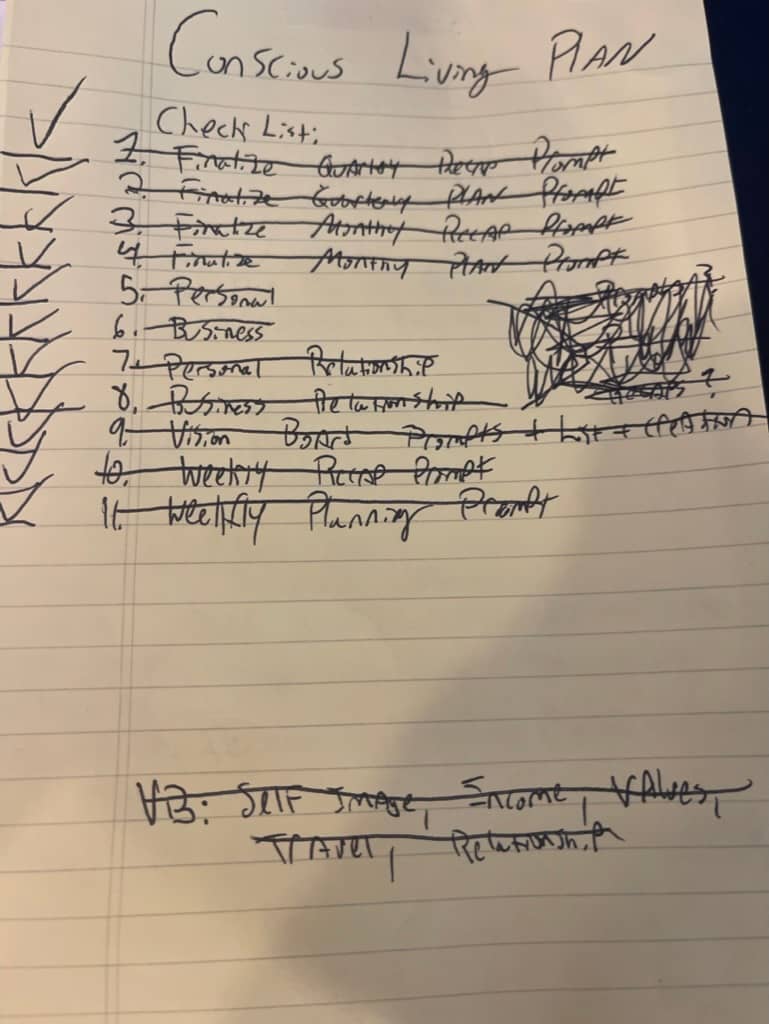 Conscious Living PLAN
Check List:
1. Finalize Quartey Recap Prompt
2. Finalize Quarterly PLAN Prompt
3. Finalize Monthly Recap Prompt
4. Finalize Monthly PLAN Prompt
5. Personal
6. Business
7. Personal Relationship
8. Business Relationship
9. Vision Board Prompts + List + CREATION
10. Weekly Recap Prompt
11. Weekly Planning Prompt
VB: Self Image, Income, Values,
Travel, Relationship